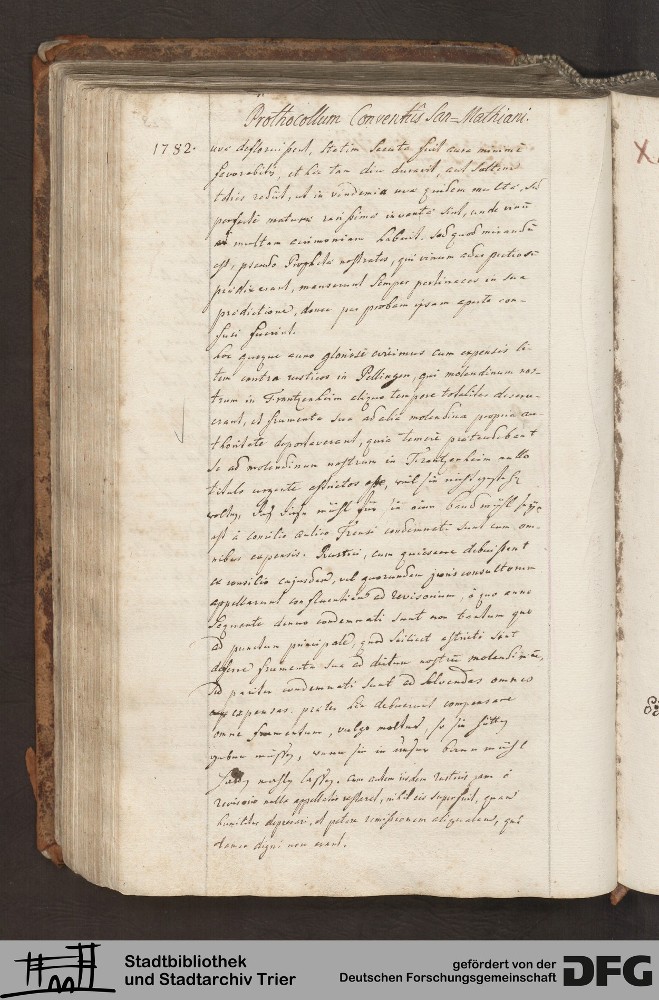 Prothocollum Conventûs San-Mathiani.
1782. uvae defloruissent, statim secuta fuit aura minimè
favorabilis, et haec tam diu duravit, aut saltem
toties rediit, ut in vindemia uvae quidem multae, sed
perfectè maturae rarissimae inventae sint, unde vinū
multam acrimoniam habuit. sed quod mirandū
est, pseudo Prophetae nostrates, qui vinum adeo pretiose
manserunt semper pertinaces in sua
praedictione, donec per probam ipsam apertè con-
fusi fuerint.
hoc quoque anno gloriosè evicimus cum expensis li-
tem contra rusticos in Pellingen, qui molendinum nos-
trum in Frantzenheim aliquo tempore totaliter deseru-
erant, et frumenta sua ad alia molendina propria au-
thoritate deportaverant, quia temerè praetendebant
se ad molendinum nostrum in Frantzenheim nullo
titulo urgente astrictos esse, weil sie nicht
wolten, daß diese mühl für sie eine bannmühl seye
ast à consilio aulico Trensi condemnati sunt cum om-
nibus expensis. Rustici, cum quiescere debuissent
ex consilio cujusdam, vel quorundam jurisconsultorum
appellarunt confluentiam ad revisorium, à quo anno
sequente denuo condemnati sunt non tantum quo
ad punctum principale, quod scilicet astricti sint
deferre frumenta sua ad dictum nostrū molendinum,
sed pariter condemnati sunt ad solvendas omnes
expensas. praeter hoc debuerunt compensare
omne frumentum, vulgo molter, so sie hätten
geben müssen, wann sie in unser bann mühl
hätten mahlen lassen. cum autem iisdem rusticis jam à
revisorio nulla appellatio restaret, nihil eis superfuit, quam
humiliter deprecari, et petere remissionem aliqualem, quâ
tamen digni non erant.
Stadtbibliothek
und Stadtarchiv Trier
gefördert von der
Deutschen Forschungsgemeinschaft
DFG